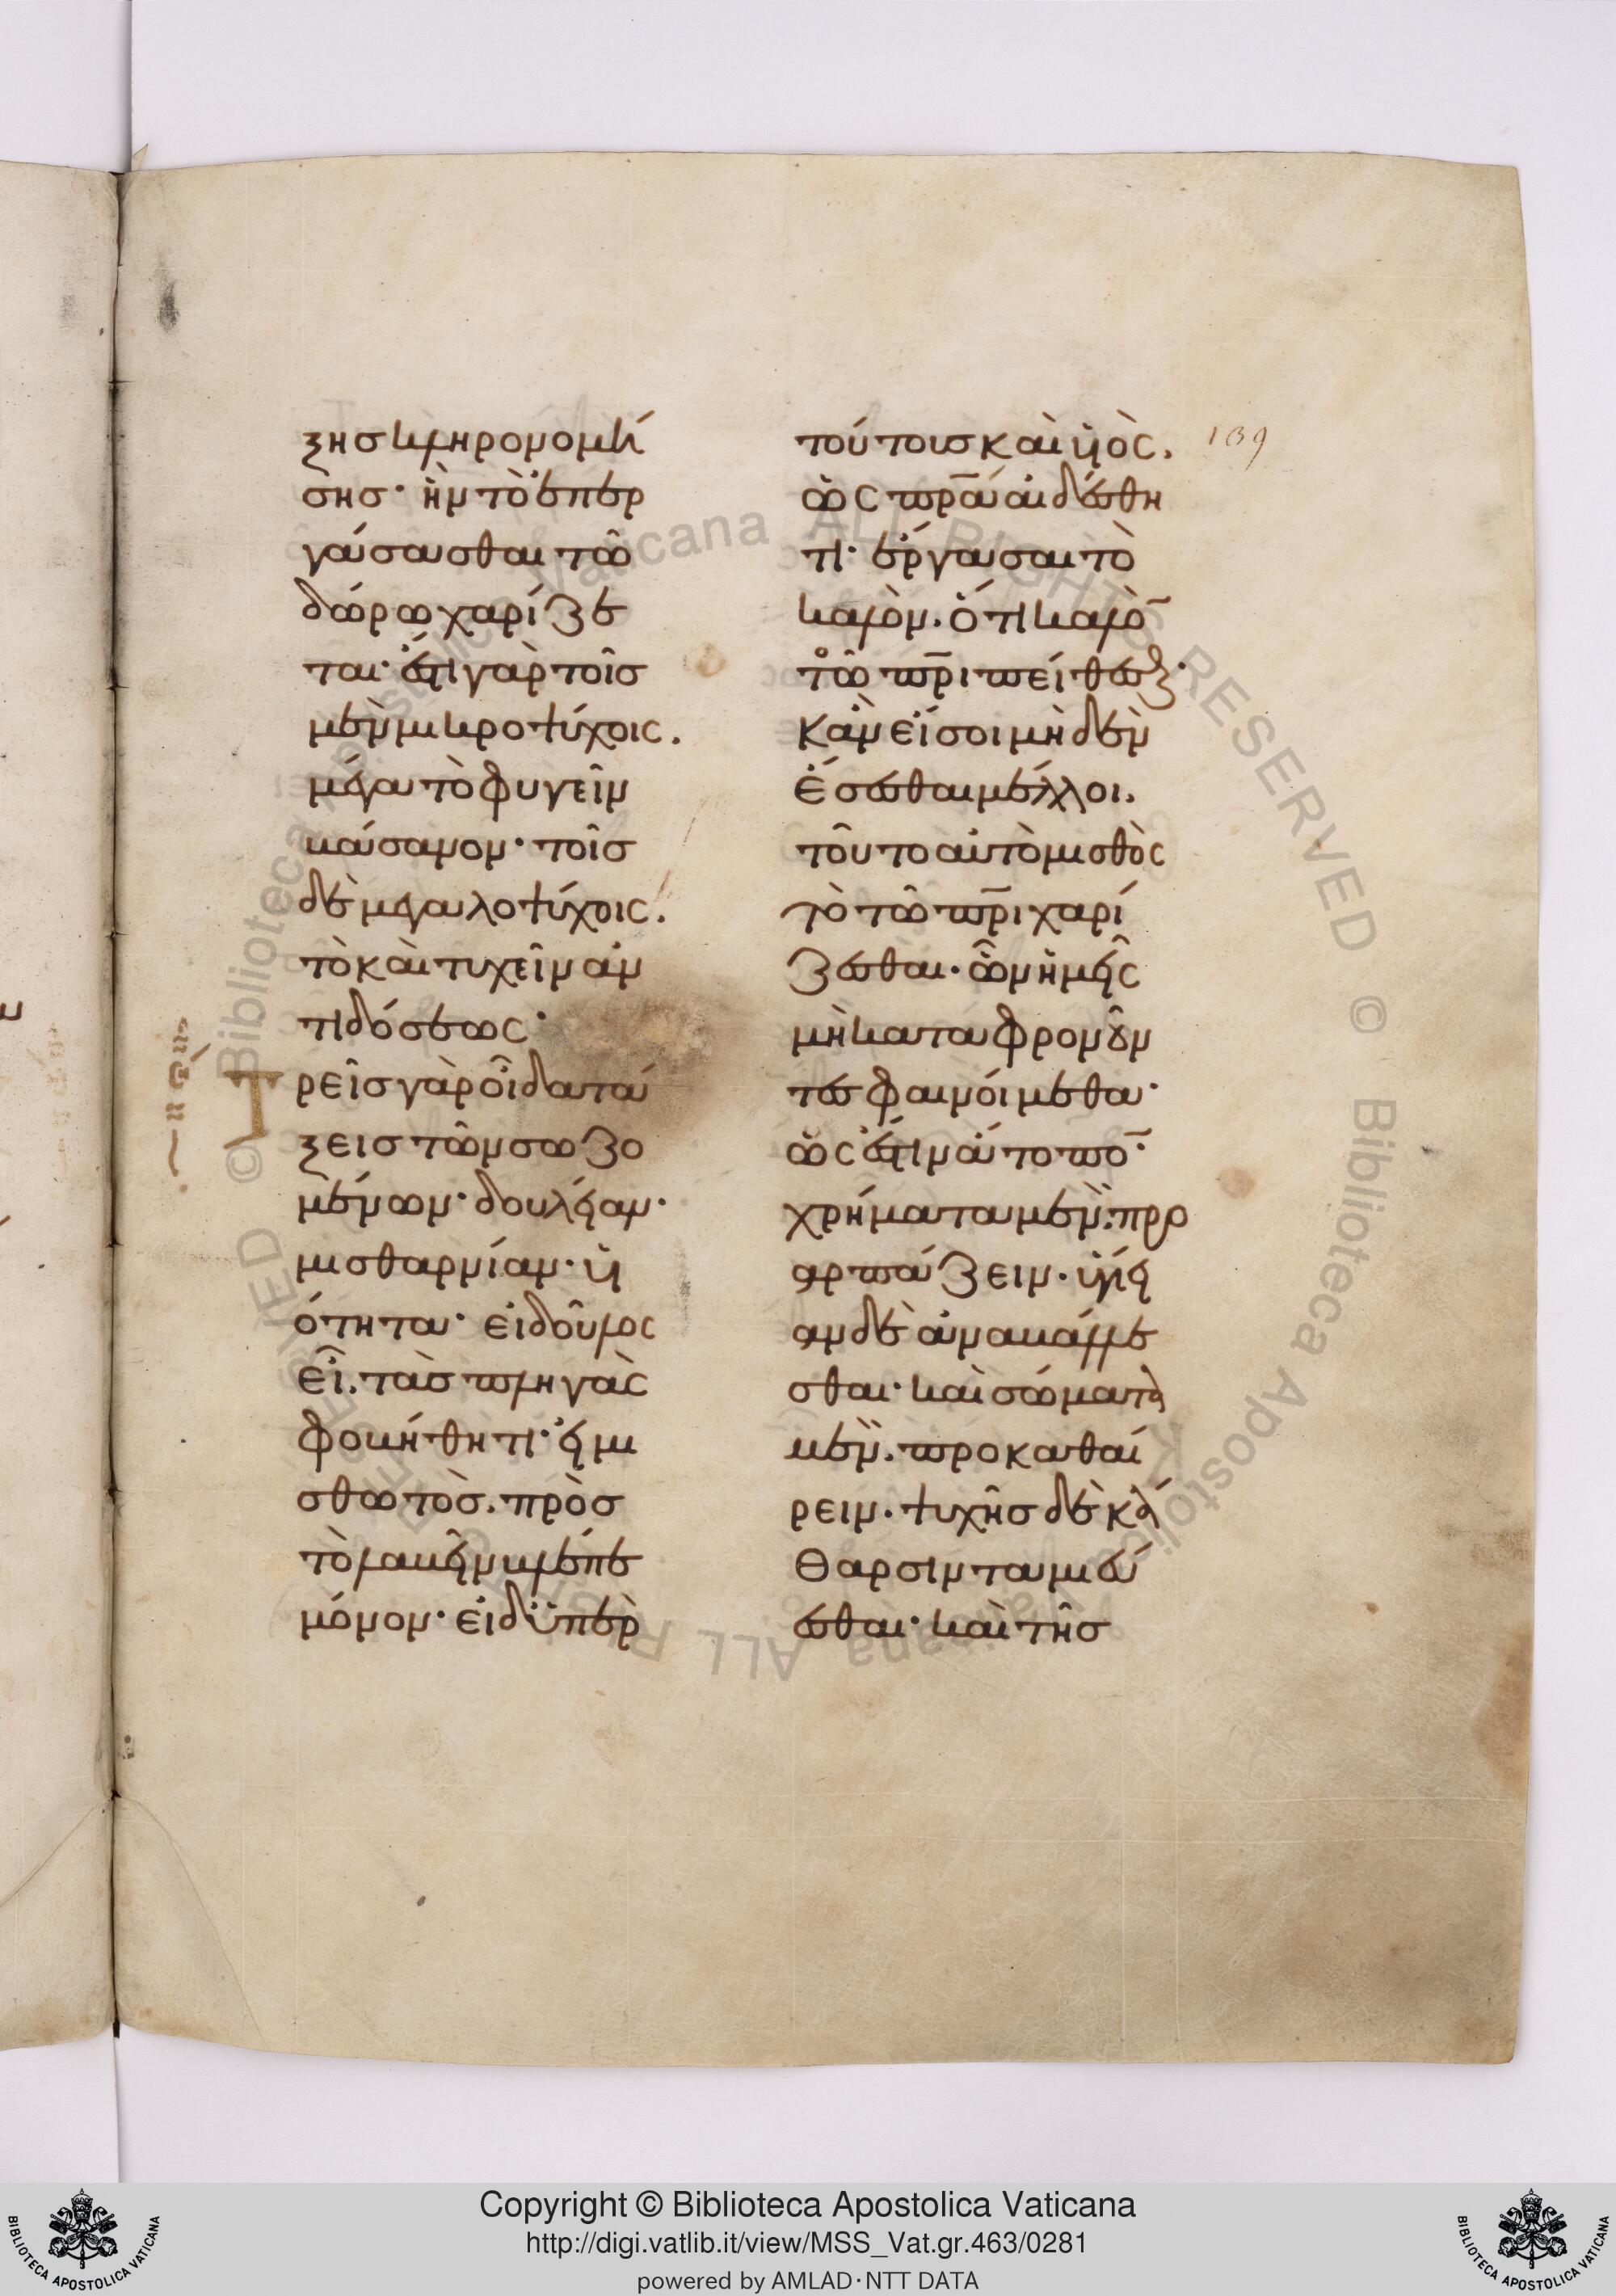 ξης κληρονομή
σης· ἢν τὸ ἐπερ
γάσασθαι τῶ
δώρω χαρίζε
ται· ἔστι γὰρ τοῖς
μὲν μικροψύχοις.
μέγα τὸ φυγεῖν
κάσανον· τοῖς
δὲ μεγαλοψύχοις.
τὸ καὶ τυχεῖν ἀν
τιδόσεως·
Τρεῖς γὰρ οἶδα τά
ξεις τῶν σωζο
μένων· δουλείαν·
μισθαρνίαν· υἱ
ότητα· εἰ δοῦλος
εἶ. τὰς πληγὰς
φοβήθητι· εἰ μι
σθωτὸς. πρὸς
τὸ λαβεῖν βλέπε
μόνον· εἰ δ' ὑπὲρ
τούτους καὶ υἱὸς.
ὡς πρ̅α αἰδέσθη
τι· ἔργασαι τὸ
καλὸν. ὅτι καλὸ̅
τῶ πρ̅ι πείθεσθ·
κἂν εἴ σοι μηδὲν
ἔσεσθαι μέλλοι.
τοῦτο αὐτὸ μισθὸς
τὸ τῶ πρ̅ι χαρί
ζεσθαι· ὧν ἡμεῖς
μὴ καταφρονοῦν
τες φαινοίμεθα·
ὡς ἔστιν ἄτοπο̅·
χρήματα μὲν. προ
αρπάζειν· ὑγίει
αν δὲ ἀναβάλλε
σθαι· καὶ σώματος
μὲν. προκαθαί
ρειν· ψυχῆς δὲ κά
θαρσιν ταμιεύ
εσθαι· καὶ τῆς
139
Copyright © Biblioteca Apostolica Vaticana
http://digi.vatlib.it/view/MSS_Vat.gr.463/0281
powered by AMLAD·NTT DATA